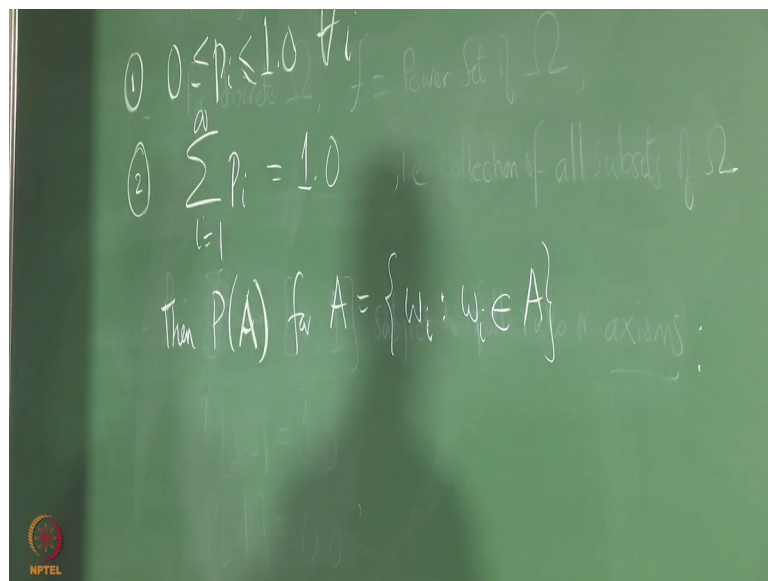 ① 0 ≤ pᵢ ≤ 1.0 ∀i
discrete Ω, f = Power Set of Ω,
② ∑_{i=1}^{∞} pᵢ = 1.0
, i.e collection of all subsets of Ω
then P(A) for A = {ωᵢ : ωᵢ ∈ A}
axioms :
NPTEL